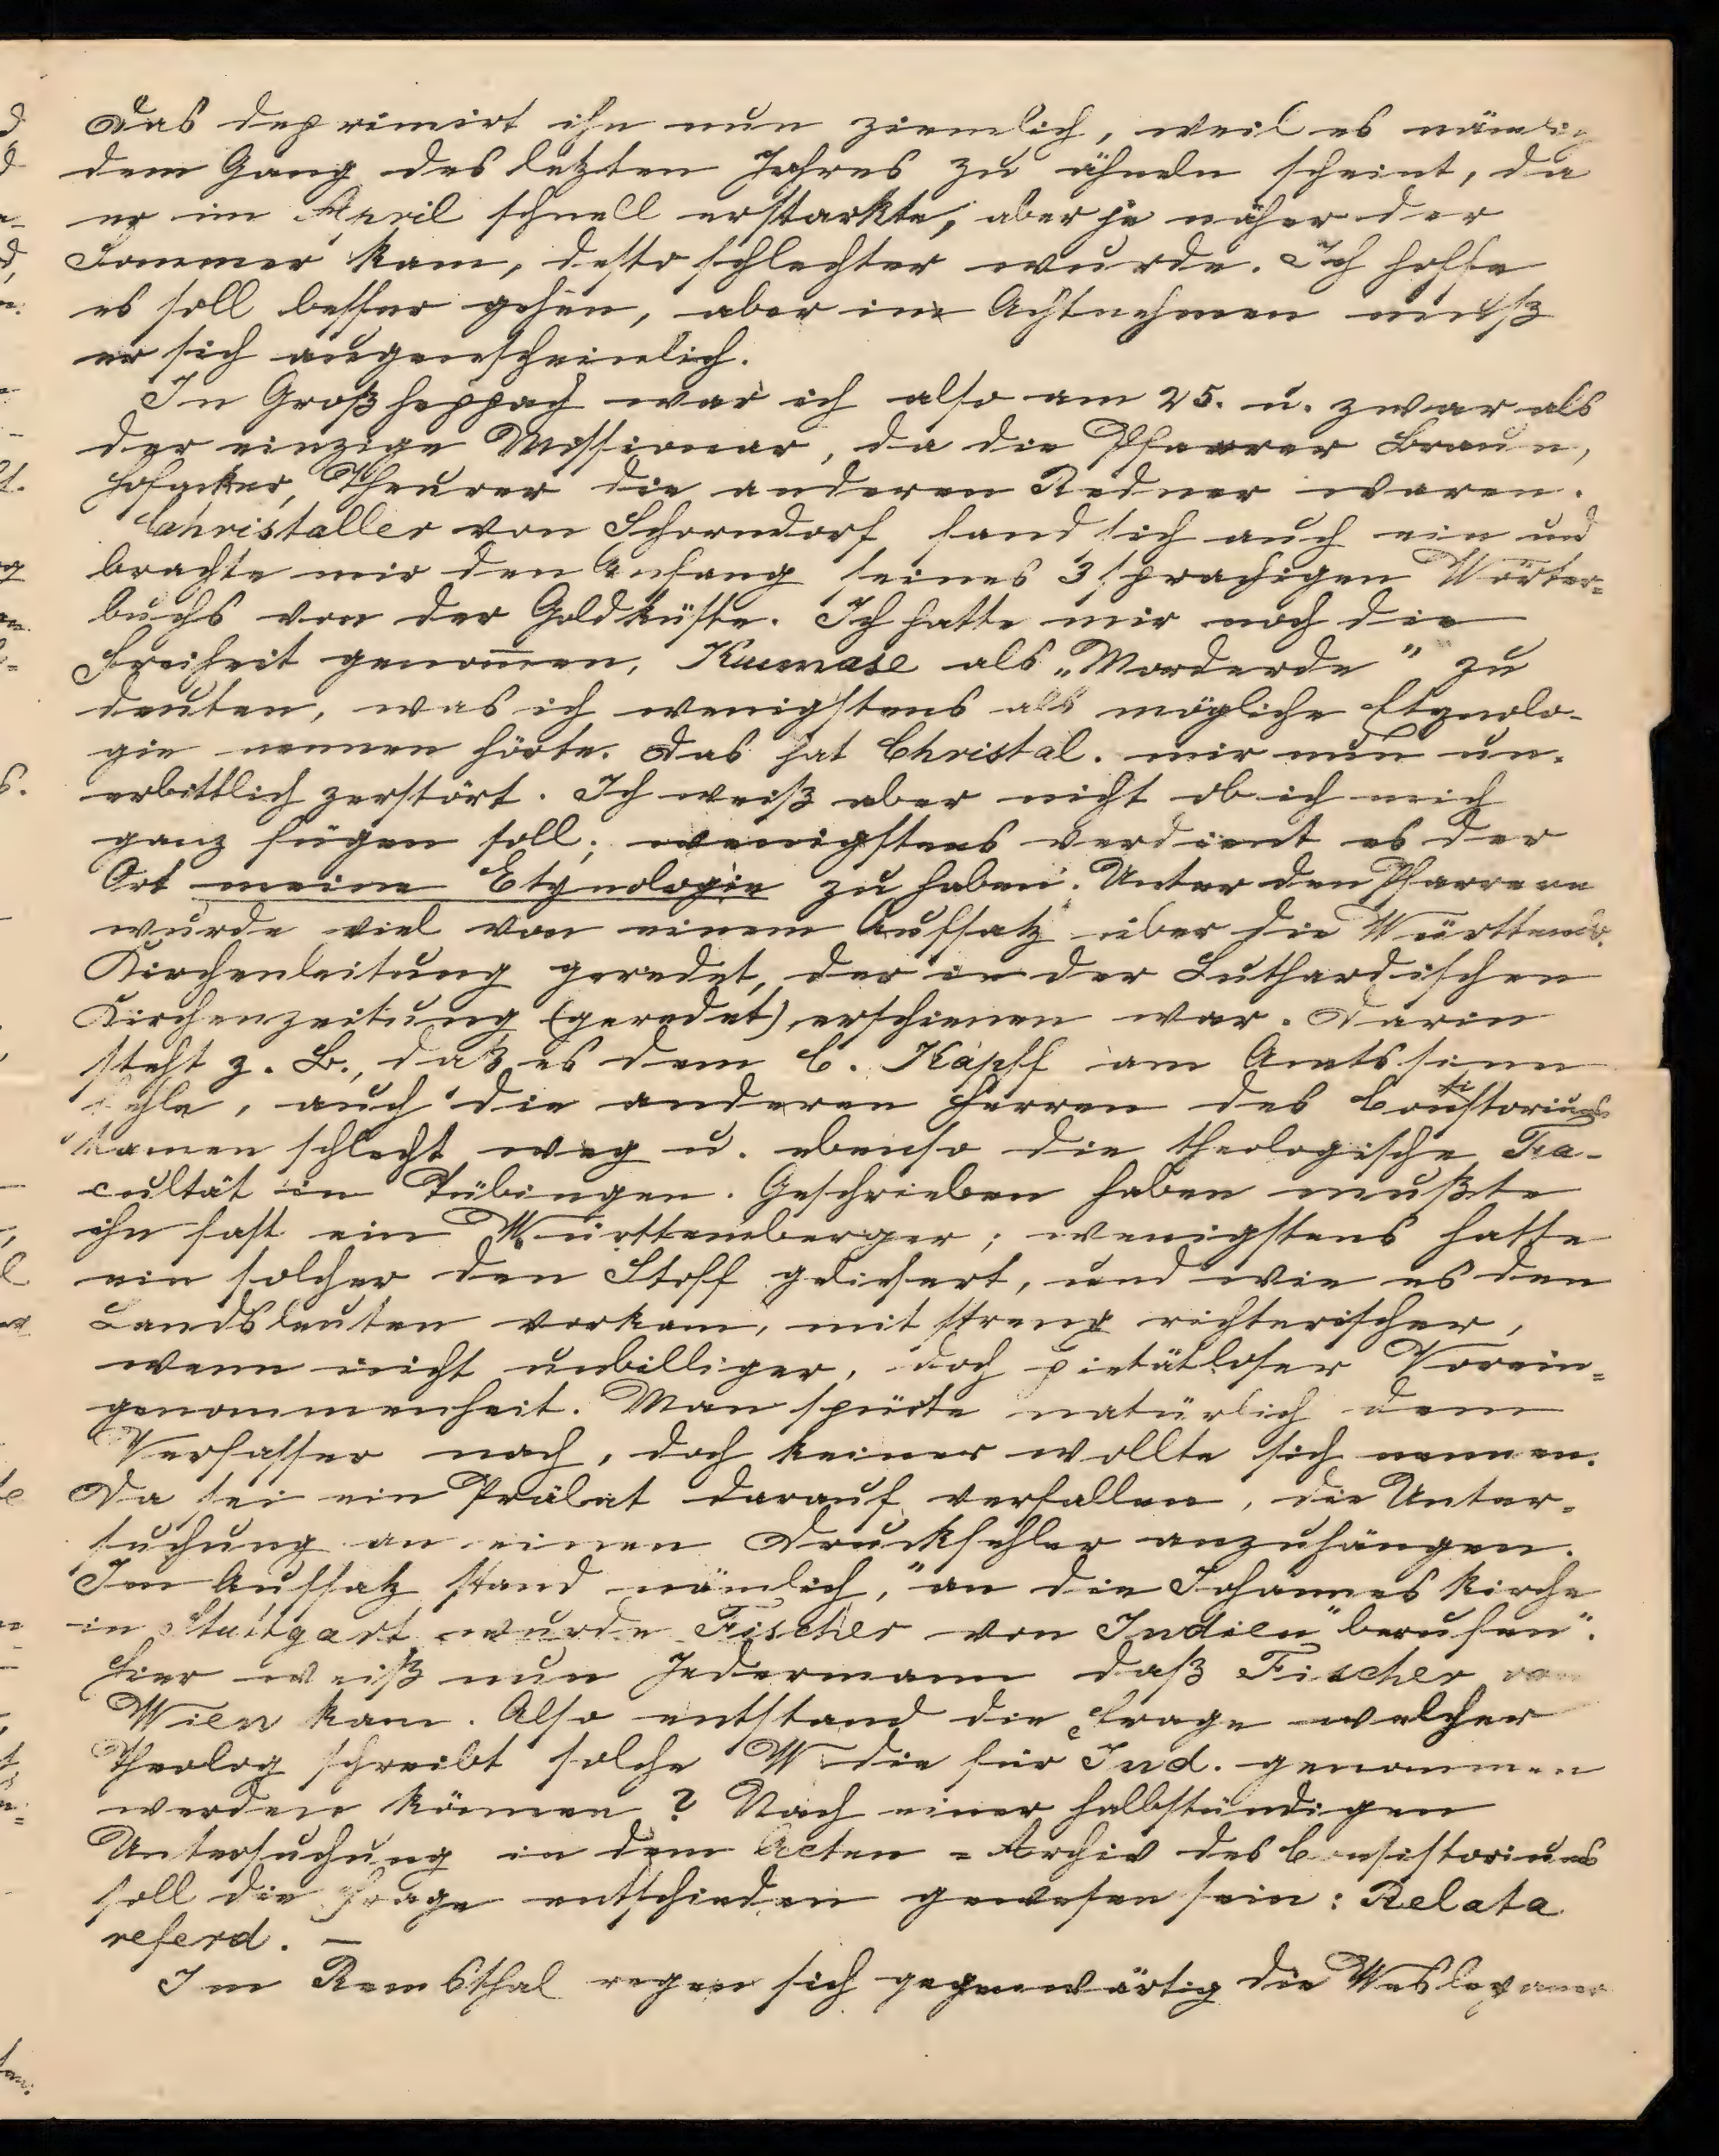 Das deprimirt ihn nun ziemlich, weil es nämlich
dem Gang des letzten Jahres zu ähneln scheint, da
er im April schnell erstarkte, aber je näher der
Sommer kam, desto schlechter wurde. Ich hoffe
es soll besser gehen, aber in Achtnehmen muß
er sich augenscheinlich.
In Großheppach war ich also am 25. u. zwar als
der einzige Missionar, da die Pfarrer Braun,
Hofacker, Theurer die anderen Redner waren.
Christaller von Schorndorf fand sich auch ein und
brachte mir den Anfang seines 3sprachigen Wörter=
buchs von der Goldküste. Ich hatte mir noch die
Freiheit genommen, Kumase als „Morderde" zu
deuten, was ich wenigstens als mögliche Etymolo-
gie nennen hörte. Das hat Christal. mir nun un-
erbittlich zerstört. Ich weiß aber nicht ob ich mich
ganz fügen soll; wenigstens verdient es der
Ort meine Etymologie zu haben. Unter den Pfarrern
wurde viel von einem Aufsatz über die Württemb.
Kirchenleitung geredet, der in der Luthardischen
Kirchenzeitung (geredet) erschienen war. Darin
steht z. B., daß es dem C. Kapff am Amtssinn
fehle, auch die anderen Herren des Consistoriums
kamen schlecht weg u. ebenso die theologische Fa-
cultät in Tübingen. Geschrieben haben mußte
ihn fast ein Württemberger; wenigstens hatte
ein solcher den Stoff geliefert, und wie es den
Landsleuten vorkam, mit streng richterischer,
wenn nicht unbilliger, doch pietätloser Vorein=
genommenheit. Man spürte natürlich dem
Verfasser nach, doch keiner wollte sich nennen.
Da sei ein Prälat darauf verfallen, die Unter-
suchung an einen Druckfehler anzuhängen.
Im Aufsatz stand nämlich, "an die Johannes Kirche
in Stuttgart wurde Fischer von Indien berufen".
Hier weiß nun Jedermann daß Fischer von
Wien kam. Also entstand die Frage welcher
Theolog schreibt solche W die für Ind. genommen
werden können? Nach einer halbstündigen
Untersuchung in dem Acten = Archiv des Consistoriums
soll die Frage entschieden gewesen sein: Relata
referd. —
Im Remsthal regen sich gegenwärtig die Wesleyaner